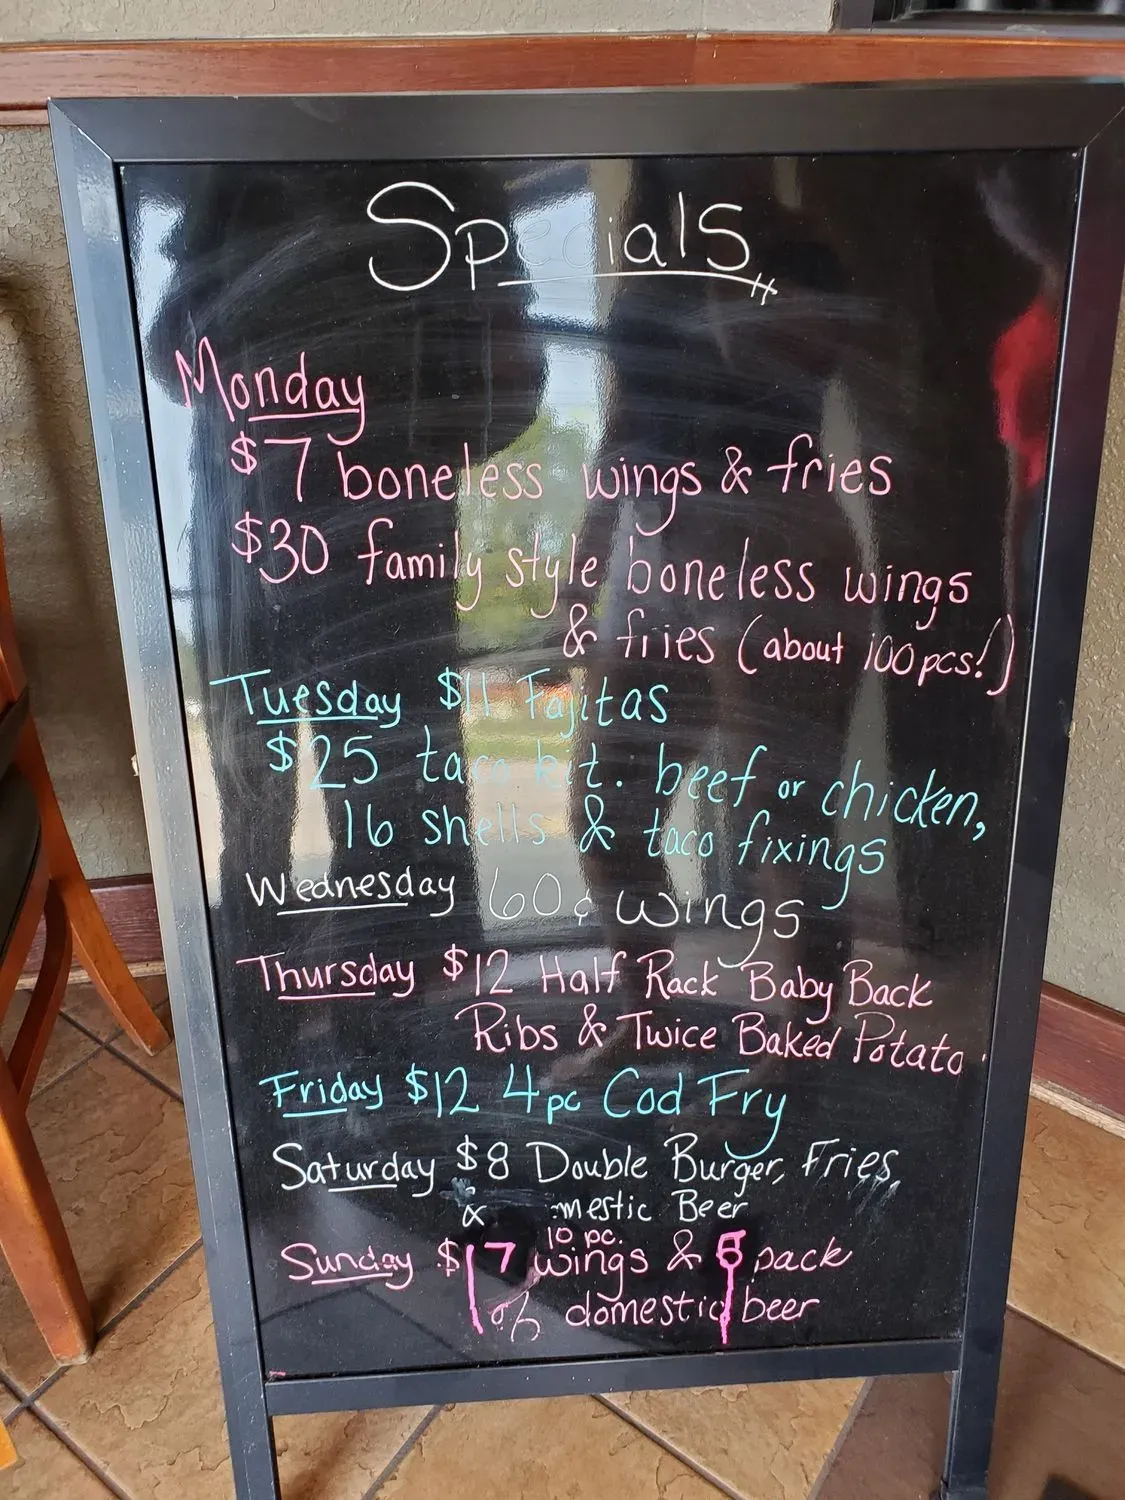 Specials
Monday
$7 boneless wings & fries
$30 family style boneless wings
& fries (about 100pcs!)
Tuesday $11 Fajitas
$25 taco kit. beef or chicken,
16 shells & taco fixings
Wednesday 60¢ wings
Thursday $12 Half Rack Baby Back
Ribs & Twice Baked Potato
Friday $12 4pc Cod Fry
Saturday $8 Double Burger, Fries,
& mestic Beer
10 pc.
Sunday $17 wings & pack
of domestic beer